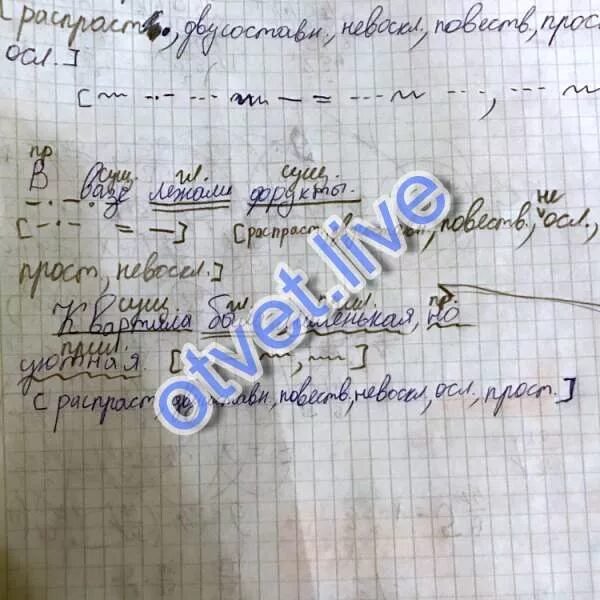 [распрост., двусоставн., невоскл., повеств., прос
осл.]
пр
сущ. гл. сущ.
В вазе лежали фрукты.
[распраст., повеств., не осл.,
прост., невоскл.]
сущ. гл. прил. пр.
Квартяла маленькая, но
прил.
уютная.
[распраст., повеств., невоскл., осл., прост.]
otvet.live